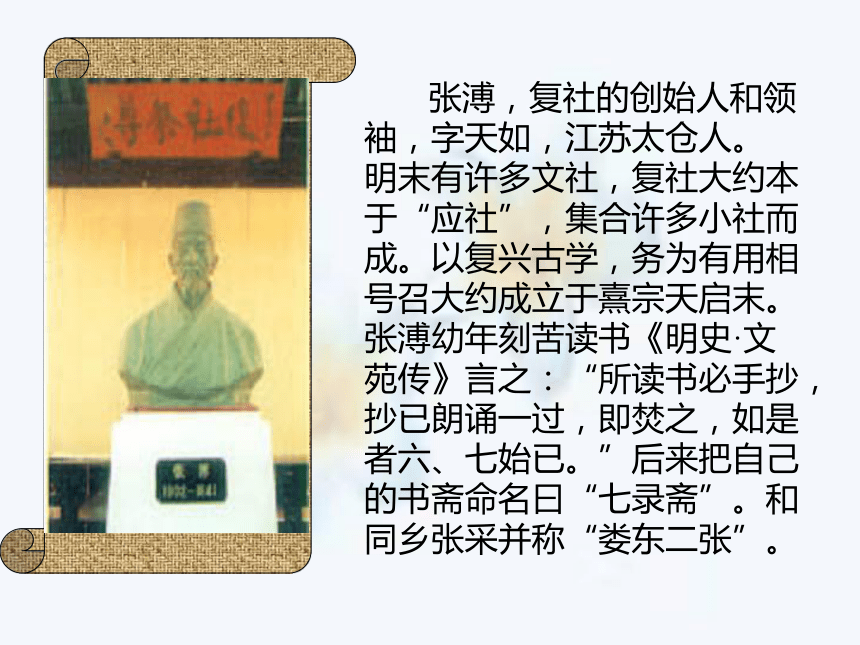 复社
张溥
张溥，复社的创始人和领
袖，字天如，江苏太仓人。
明末有许多文社，复社大约本
于“应社”，集合许多小社而
成。以复兴古学，务为有用相
号召大约成立于熹宗天启末。
张溥幼年刻苦读书《明史·文
苑传》言之：“所读书必手抄，
抄已朗诵一过，即焚之，如是
者六、七始已。”后来把自己
的书斋命名曰“七录斋”。和
同乡张采并称“娄东二张”。